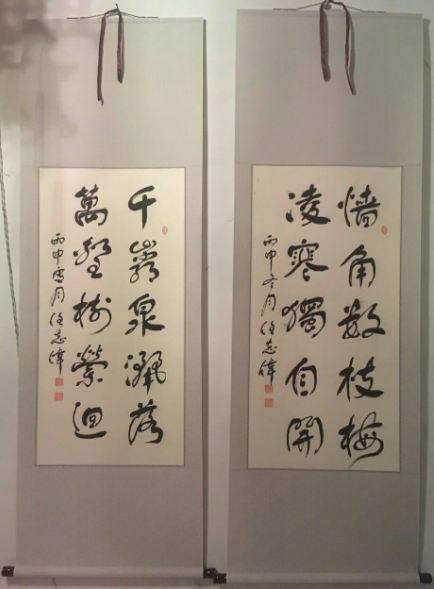 墙角数枝梅
凌寒獨自開
丙申冬月任志偉
千巖泉灑落
萬壑樹縈迴
丙申雪月任志偉